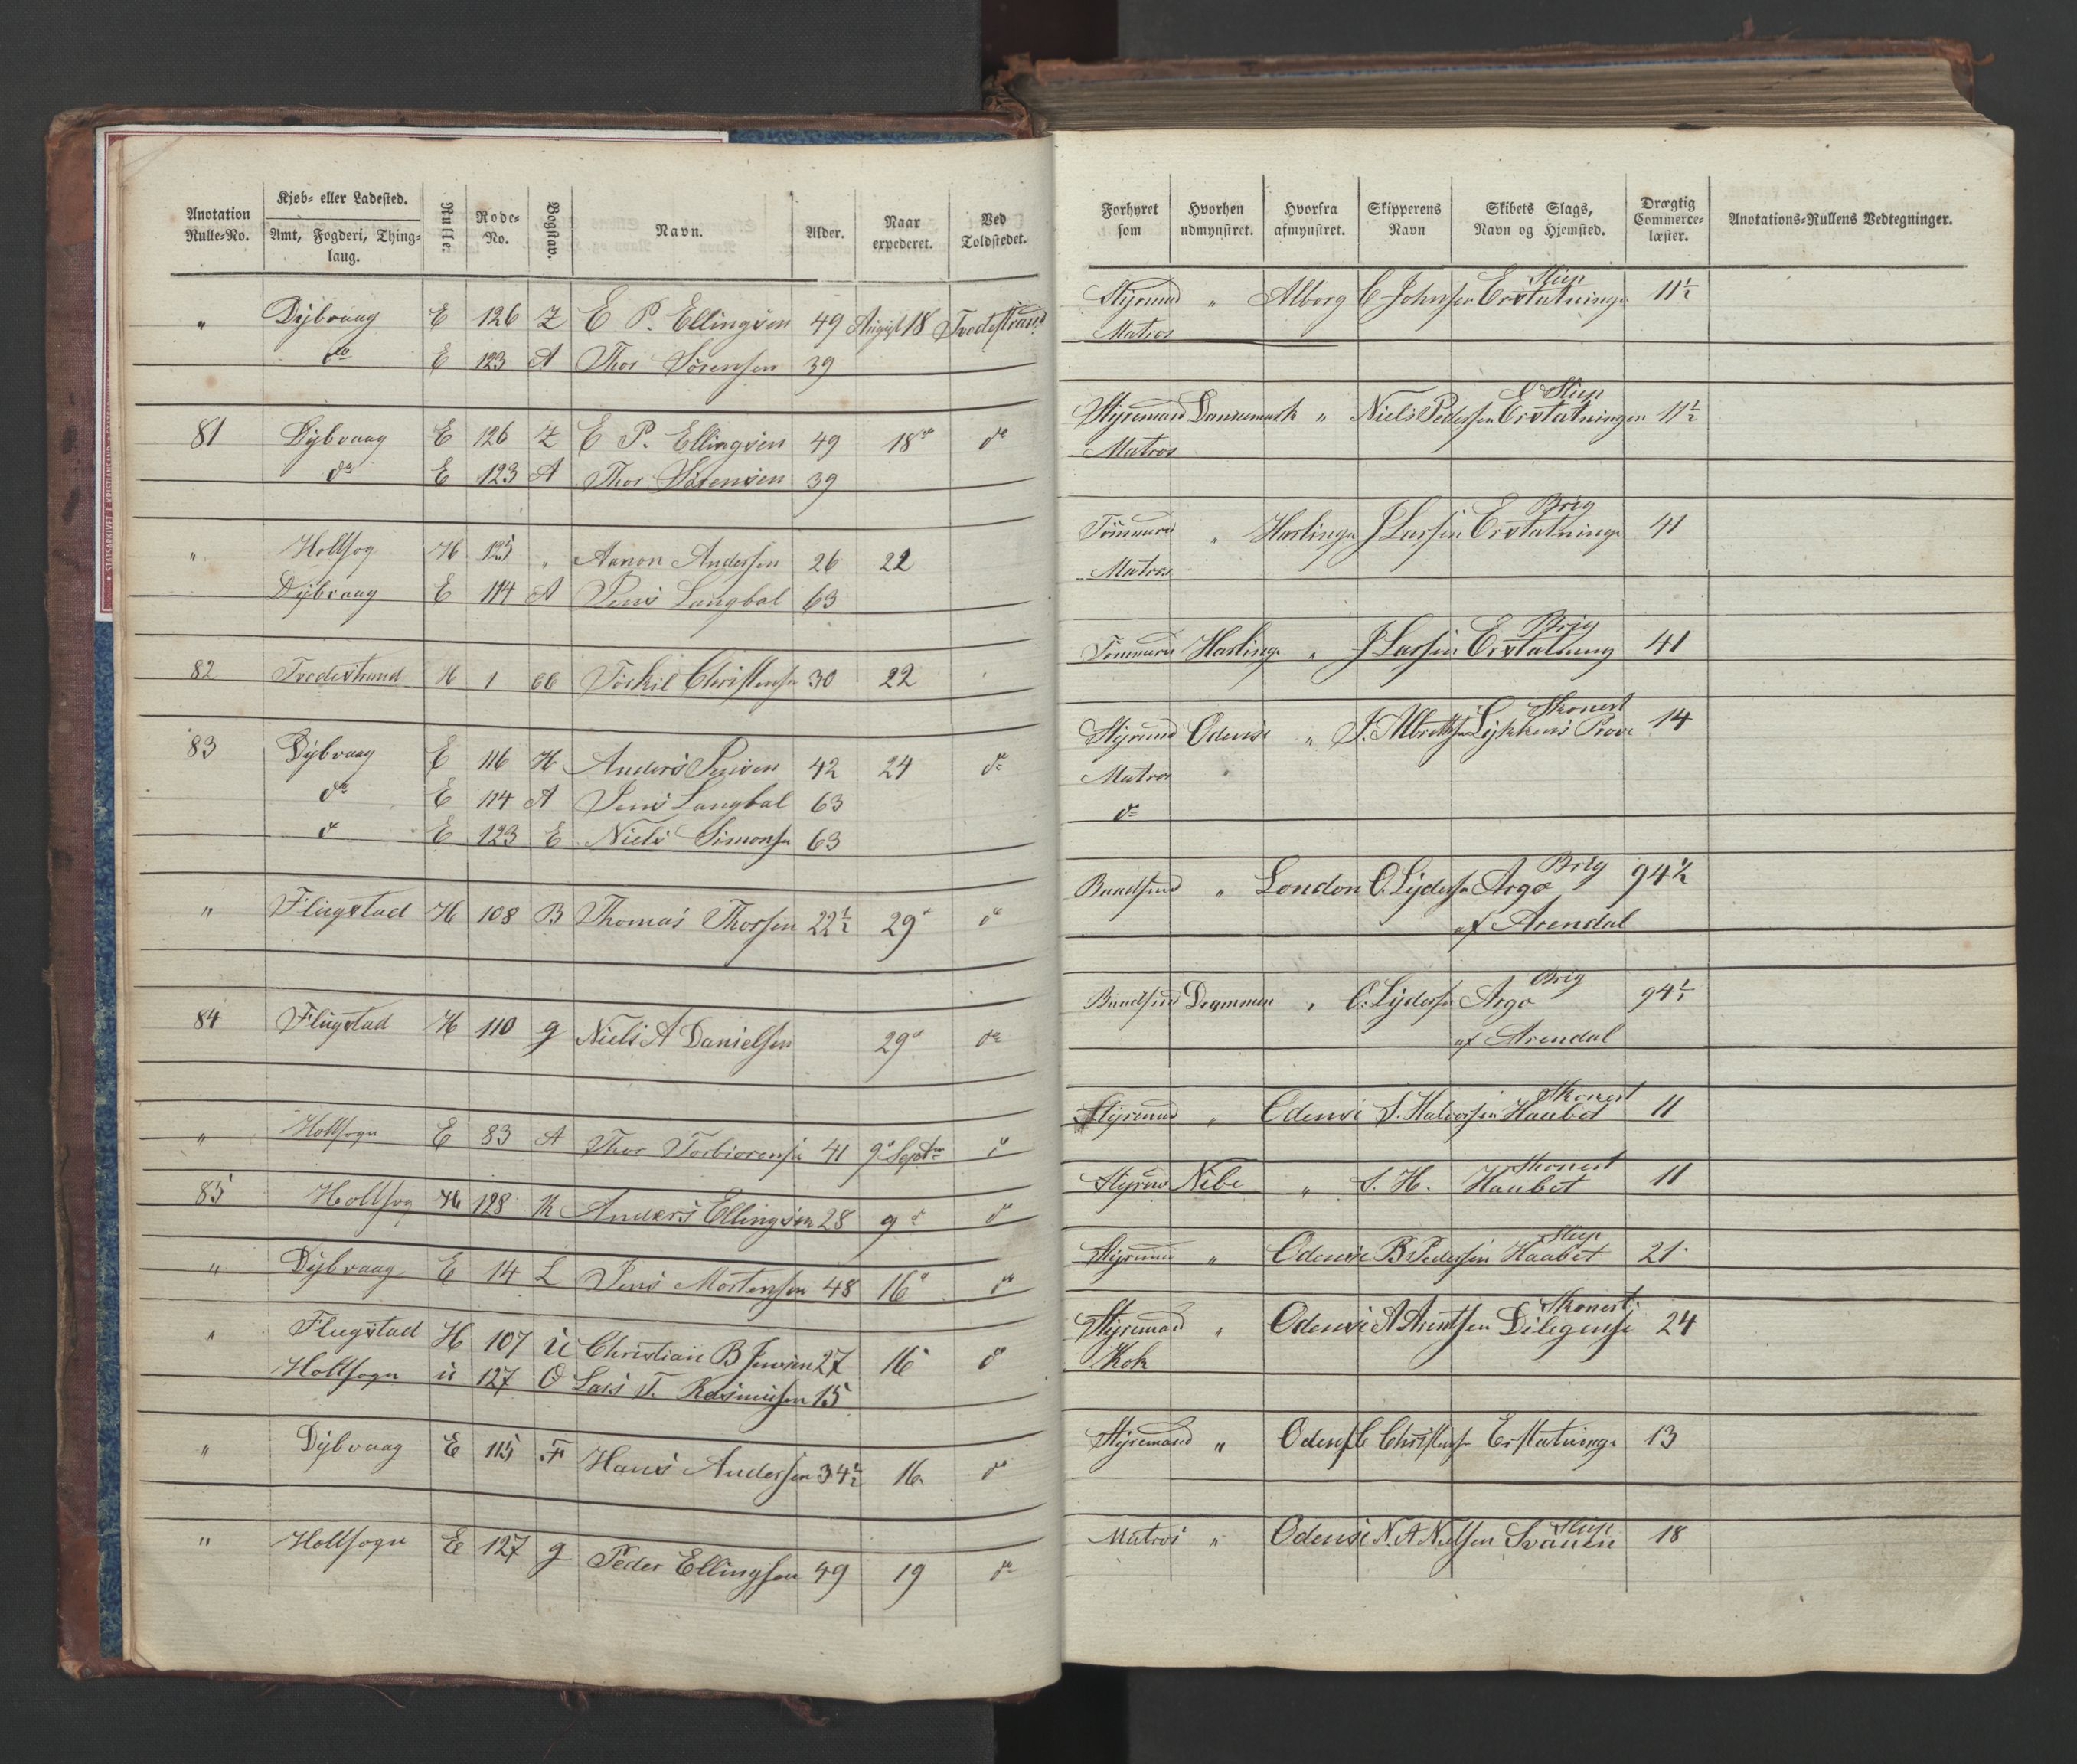 Anotation Rulle-No.
Kjøb- eller Ladested.
Amt, Fogderi, Thinglaug.
Rulle.
Rode-No.
Bogstav.
Navn.
Alder.
Naar expederet.
Ved Toldstedet.
" Dybvaag E 126 Z E P. Ellingsen 49 August 18 Tvedestrand
do E 123 A Thor Sörensen 39
81 Dybvaag E 126 Z E P. Ellingsen 49 18de do
do E 123 A Thor Sörensen 39
" Holtsog H 125 " Aanon Andersen 26 22
Dybvaag E 114 A Jens Langbal 63
82 Tvedestrand H 1 Törkil Christensen 30 22
83 Dybvaag E 116 H Anders Jensen 42 24 do
do E 114 A Jens Langbal 63
do E 123 E Niels Simonsen 63
" Flugstad H 108 B Thomas Thorsen 22½ 29 do
84 Flugstad H 110 g Niels A Danielsen 29 do
" Holtsogn E 83 A Thor Torbiorensen 41 9 Septr do
85 Holtsog H 128 Anders Ellingsen 28 9 do
" Dybvaag E 14 L Jens Mortensen 48 16 do
" Flugstad H 107 ü Christian B Jensen 27 16 do
Holtsogn ü 127 O Lars T. Rasmusen 15
" Dybvaag E 115 F Hans Andersen 34½ 16 do
" Holtsogn E 127 g Peder Ellingsen 49 19 do
Forhyret som
Hvorhen udmynstret.
Hvorfra afmynstret.
Skipperens Navn
Skibets Slags, Navn og Hjemsted.
Drægtig Commerce-læster.
Anotations-Rullens Vedtegninger.
Slup
Styrmand " Alborg C Johnsen Erstatningen 11½
Matros
Slup
Styremand Dannemark " Niels Pedersen Erstatningen 11½
Matros
Brig
Tömmermand " Harlingen J Larsen Erstatningen 41
Matros
Brig
Tömmermand Harlingen " J Larsen Erstatning 41
Skonert
Styrmand Odense " J. Albretsen Lykkens Prove 14
Matros
do
Brig
Baadsmd " London O. Lydersen Argo 94½
af Arendal
Brig
Baadsmd Drammen " O. Lydersen Argo 94½
af Arendal
Skonert
Styremand " Odense S. Halvorsen Haabet 11
Skonert
Styrmd Nibe " S. H. Haabet 11
Slup
Styrmand " Odense B Pedersen Haabet 21
Skonert
Styremand " Odense A Arentsen Diligense 24
Kok
Styremand " Odense C Christensen Erstatninge 13
Slup
Matros " Odense N. A Nielsen Svanen 18